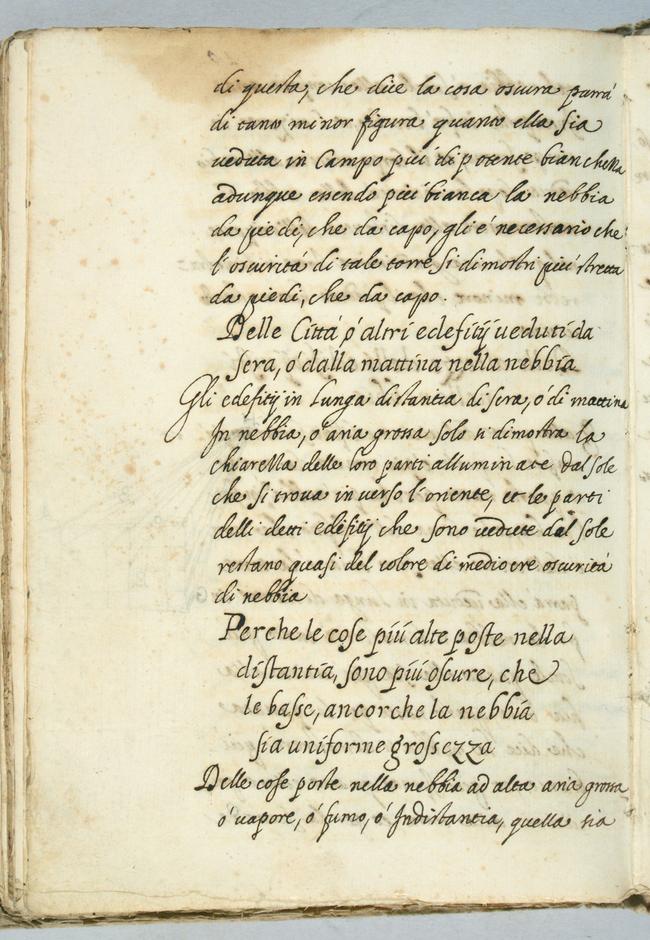 di questa, che dice la cosa oscura parrá
di tanto minor figura quanto ella sia
ueduta in Campo piú di potente bianchezza
adunque essendo piú bianca la nebbia
da piedi, che da capo, gli é necessario che
l'oscuritá di tale torre si dimostri piú stretta
da piedi, che da capo.
Delle Cittá ó altri edefitij ueduti da
sera, ó dalla mattina nella nebbia
Gli edefitij in Lunga distantia di sera, ó di mattina
In nebbia, ó aria grossa solo si dimostra la
chiarezza delle loro parti alluminate dal sole
che si troua inuerso l'oriente, et le parti
delli detti edefitij che sono uedute dal sole
restano quasi del colore di mediocre oscuritá
di nebbia
Perche le cose piú alte poste nella
distantia, sono piú oscure, che
le basse, ancorche la nebbia
sia uniforme grossezza
Delle cose poste nella nebbia ad alta aria grossa
ó uapore, ó fumo, ó Indistantia, quella sia